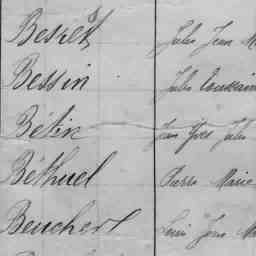 Besret Jules Jean M
Bessin Jules Toussain
Bétin Jean Yves Jules
Béthuel Pierre Marie
Beuchert Louis Jean Ma